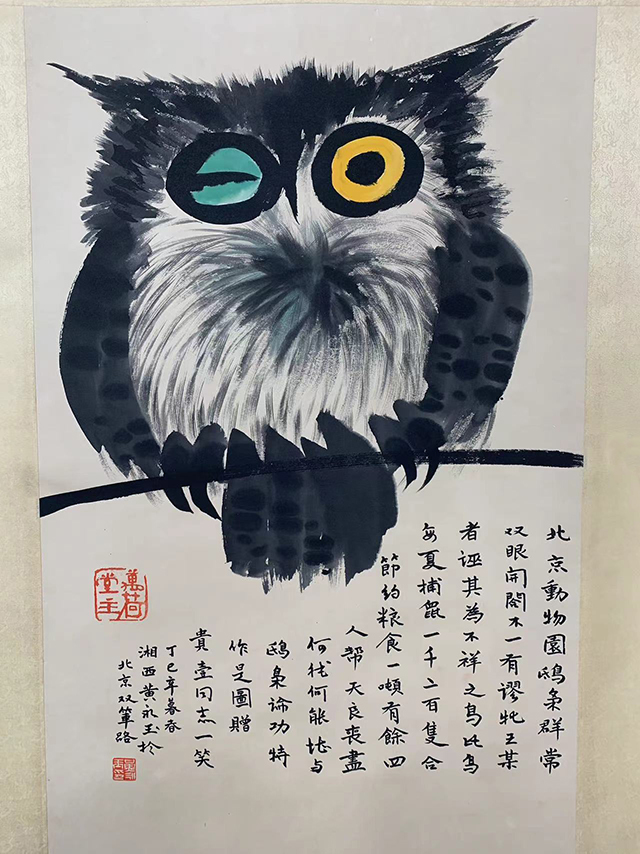 北京動物園鴟梟群常
双眼開闔不一有謬牝王某
者誣其為不祥之鳥此鳥
每夏捕鼠一千二百隻合
節约粮食一噸有餘四
人幫天良丧盡
何德何能堪与
鴟梟論功特
作是圖贈
貴壹同志一笑
丁巳年暮春
湘西黄永玉於
北京双箪路
萬荷堂主